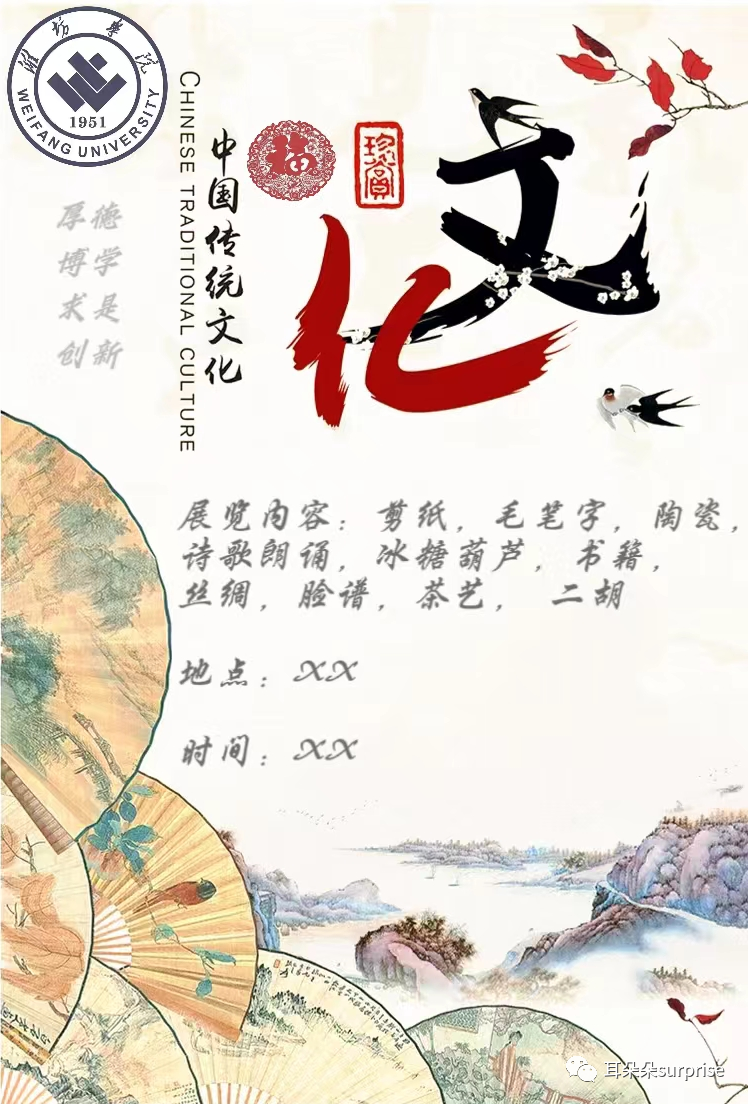 潍坊学院
1951
WEIFANG UNIVERSITY
CHINESE TRADITIONAL CULTURE
中国传统文化
福
文化
厚德
博学
求是
创新
展览内容：剪纸，毛笔字，陶瓷，
诗歌朗诵，冰糖葫芦，书籍，
丝绸，脸谱，茶艺， 二胡
地点：XX
时间：XX
耳朵朵surprise